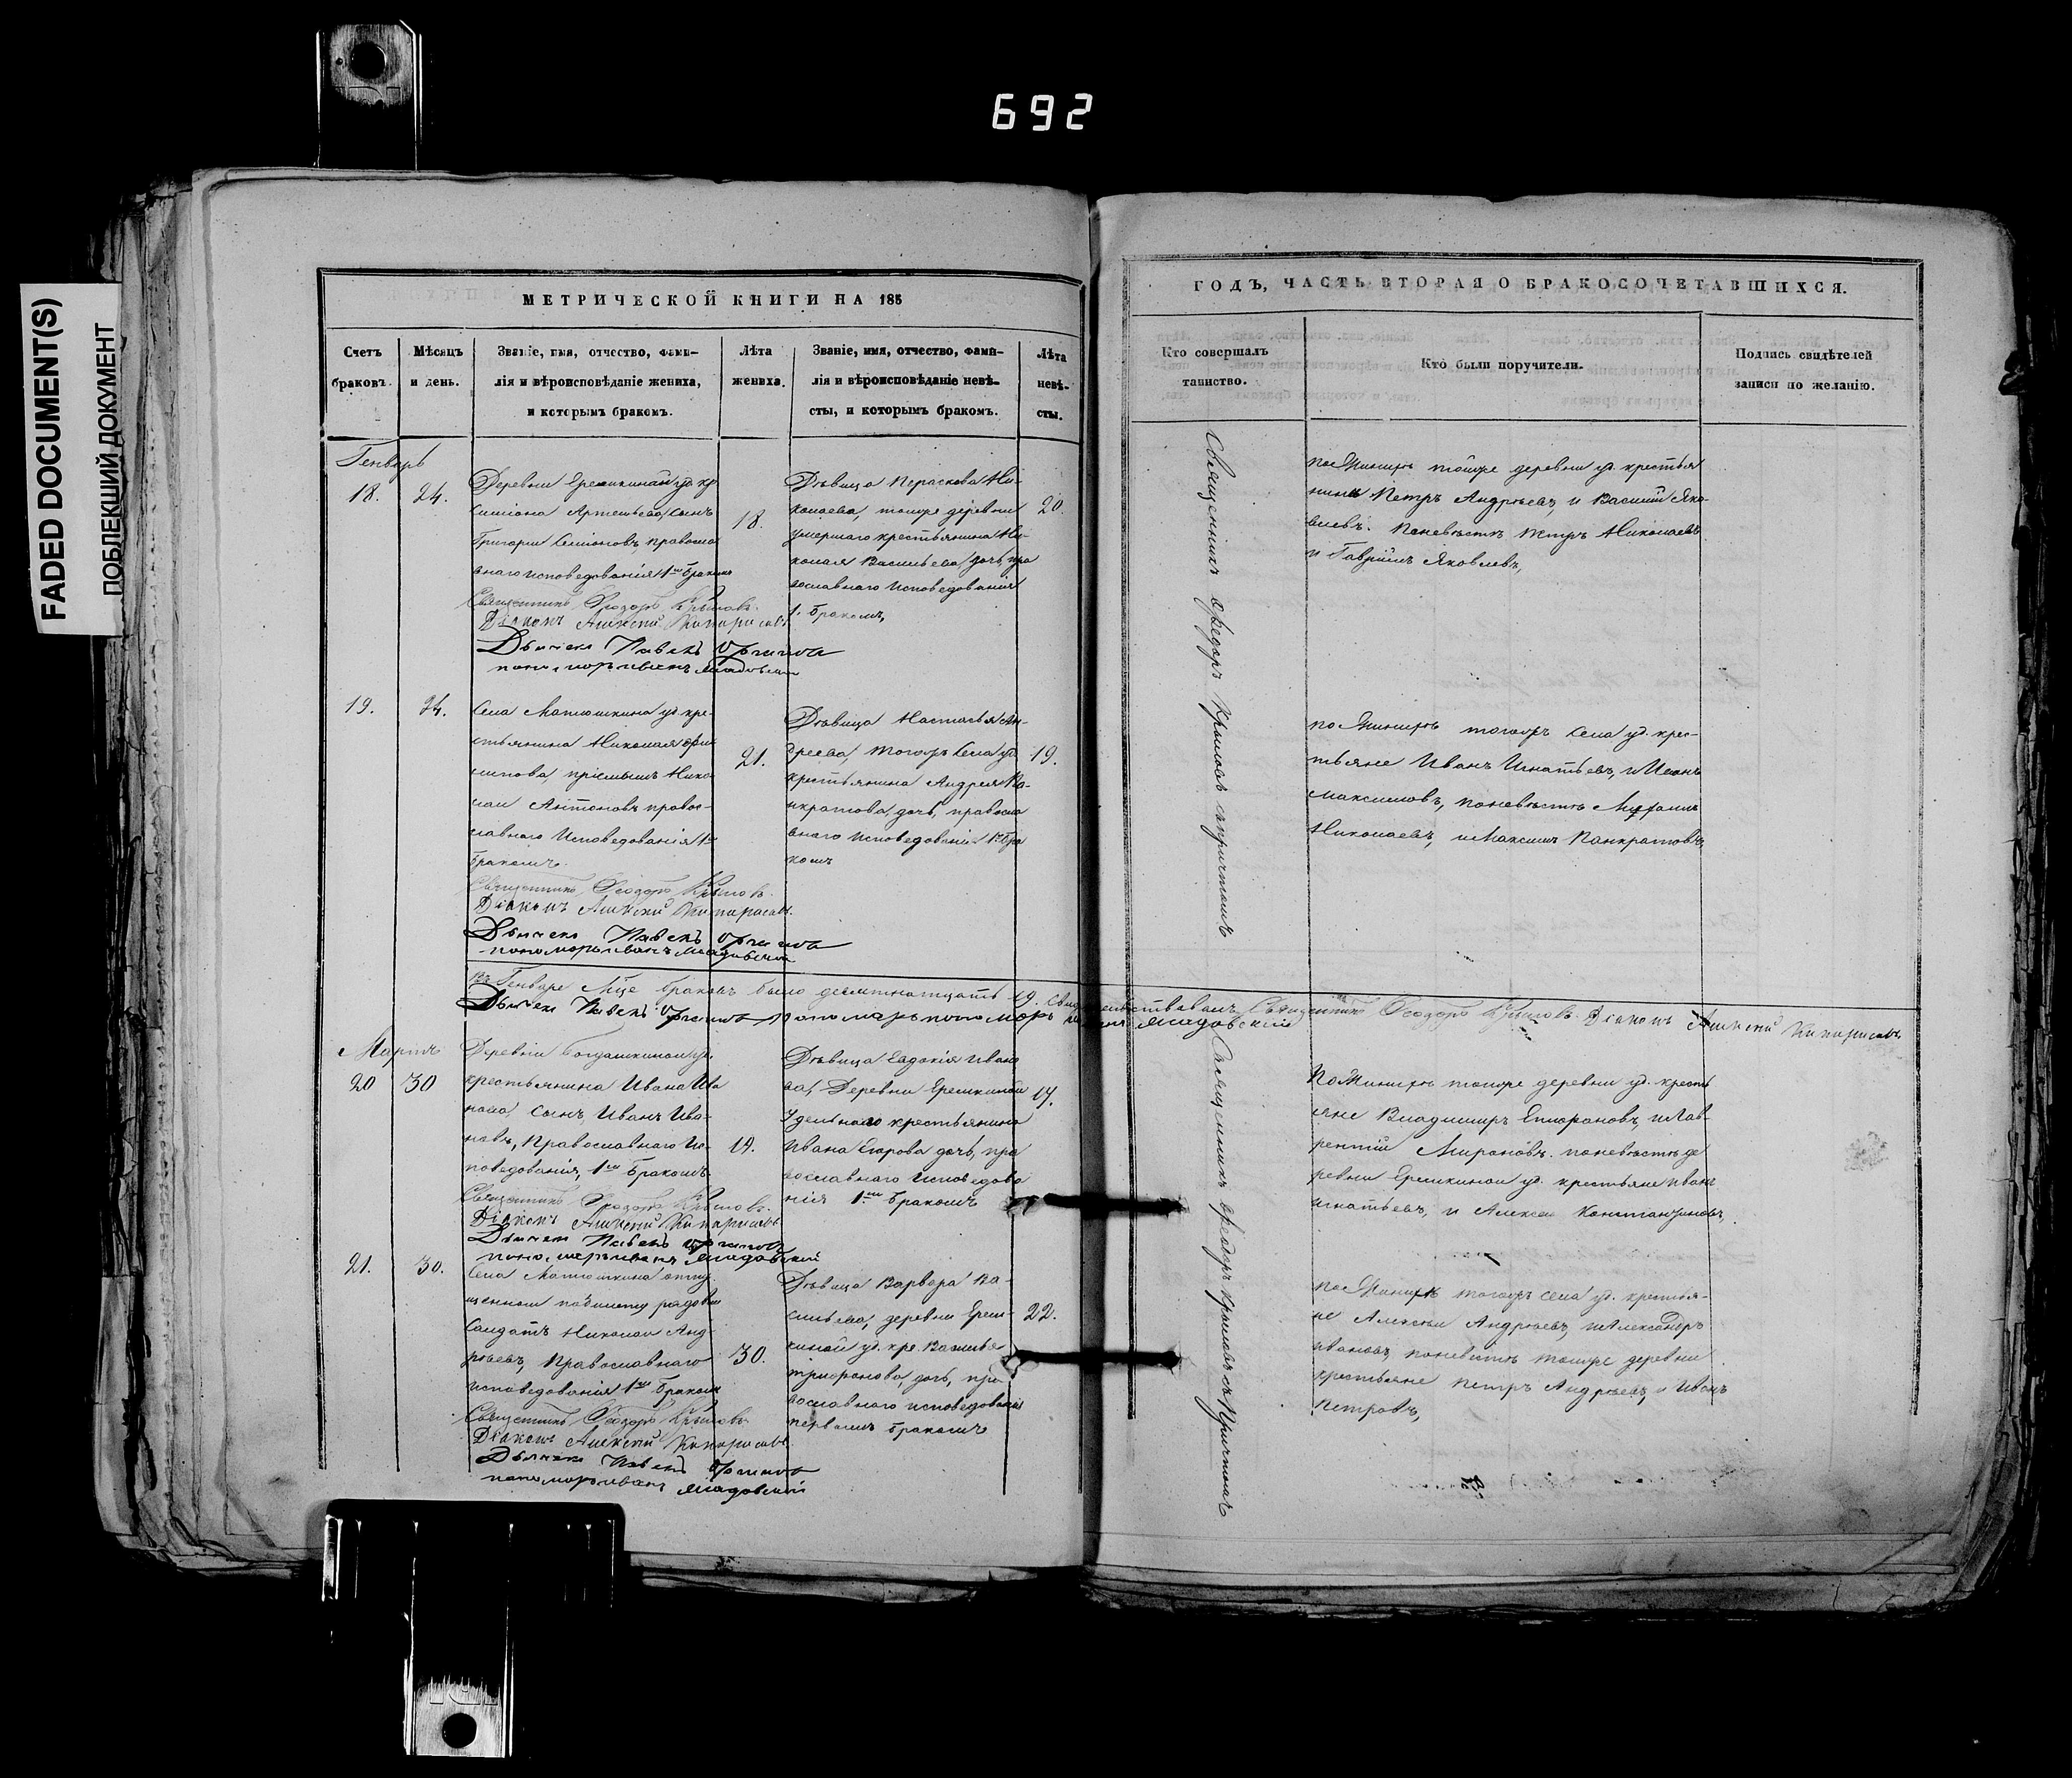 692
FADED DOCUMENT(S)
ПОБЛЕКШИЙ ДОКУМЕНТ
МЕТРИЧЕСКОЙ КНИГИ НА 185
Счетъ браковъ.
Мѣсяцъ и день.
Званіе, имя, отчество, фами-
лія и вѣроисповѣданіе жениха,
и которымъ бракомъ.
Лѣта жениха.
Званіе, имя, отчество, фами-
лія и вѣроисповѣданіе невѣ-
сты, и которымъ бракомъ.
Лѣта невѣ-
сты.
ГОДЪ, ЧАСТЬ ВТОРАЯ О БРАКОСОЧЕТАВШИХСЯ.
Кто совершалъ
таинство.
Кто были поручители.
Подпись свидѣтелей
записи по желанію.
Генварь
18.
24.
Деревни Еремкиной уд. кр.
Симіона Артемьева сынъ
Григорій Симіоновъ, правосла
внаго исповедованія 1мъ бракомъ
Священникъ Ѳеодоръ Крыловъ.
Діаконъ Алексій Кипарисовъ.
Дьячекъ Павелъ
пономарь Иванъ
18.
Дѣвица Параскова Ни-
колаева, тойже деревни
умершаго крестьянина Ни-
колая Васильева дочь, пра
вославнаго исповедованія
1. бракомъ,
20.
Священникъ Ѳедоръ Крыловъ съ причтомъ
по Женихѣ тойже деревни уд. крестья
нинъ Петръ Андрѣевъ, и Василій Яко-
влевъ. Поневѣстѣ Петръ Николаевъ
и Гаврійлъ Яковлевъ,
19.
24.
Села Матюшкина уд. кре-
стьянина Николая Фи-
липова, пріемышъ Нико
лай Антоновъ правос-
лавнаго Исповедованія 1мъ
бракомъ.
Священникъ Ѳеодоръ Крыловъ.
Діаконъ Алексій Кипарисовъ.
Дьячекъ Павелъ
пономарь Иванъ
21.
Дѣвица Настасья Ан-
дреева, тогожъ Села уд.
крестьянина Андрея Па-
нкратова, дочь, правосла
внаго исповедованія 1мъ бра
комъ
19.
по Женихѣ тогожъ Села уд. крес-
тьяне Иванъ Игнатьевъ, и Иванъ
Максимовъ, поневѣстѣ
Николаевъ, и Максимъ Панкратовъ,
Въ Генваре м-це браковъ было девятнатцать 19. Свидетельствовалъ Священникъ Ѳеодоръ Крыловъ. Діаконъ Алексій Кипарисовъ.
Дьячекъ Павелъ
Мартъ
20
30
Деревни уд.
крестьянина Ивана Ива
нова, сынъ, Иванъ Ива-
новъ, Православнаго Ис-
поведованія, 1мъ бракомъ
Священникъ Ѳеодоръ Крыловъ.
Діаконъ Алексій Кипарисовъ
Дьячекъ Павелъ
пономарь Иванъ
19.
Дѣвица Евдокія Ивано
ва, Деревни Еремкиной
Удельнаго крестьянина
Ивана Егорова дочь, пра
вославнаго исповедова
нія 1мъ бракомъ
Священникъ Ѳедоръ Крыловъ съ Причтомъ
По Женихѣ тойже деревни уд. кресть
яне Владимиръ и Лав-
рентій Мироновъ. поневѣстѣ де
ревни Еремкиной уд. крестьяне Иванъ
Игнатьевъ, и Алексей Константиновъ,
21.
30.
Села Матюшкина отпу-
щенной побилету рядовой
Солдатъ Николай Анд-
рѣевъ, Православнаго
исповедованія 1мъ бракомъ
Священникъ Ѳеодоръ Крыловъ.
Діаконъ Алексій Кипарисовъ.
Дьячекъ Павелъ
пономарь Иванъ
30.
Дѣвица Варвара Ва-
сильева, деревни Ерем-
киной уд. кре. Василья
Трифонова, дочь, пра-
вославнаго исповедованія
первымъ бракомъ
22.
по Женихѣ тогожъ села уд. крестья-
не Алексей Андрѣевъ, и Александръ
Ивановъ, поневѣстѣ тойже деревни
крестьяне Петръ Андрѣевъ, и Иванъ
Петровъ,